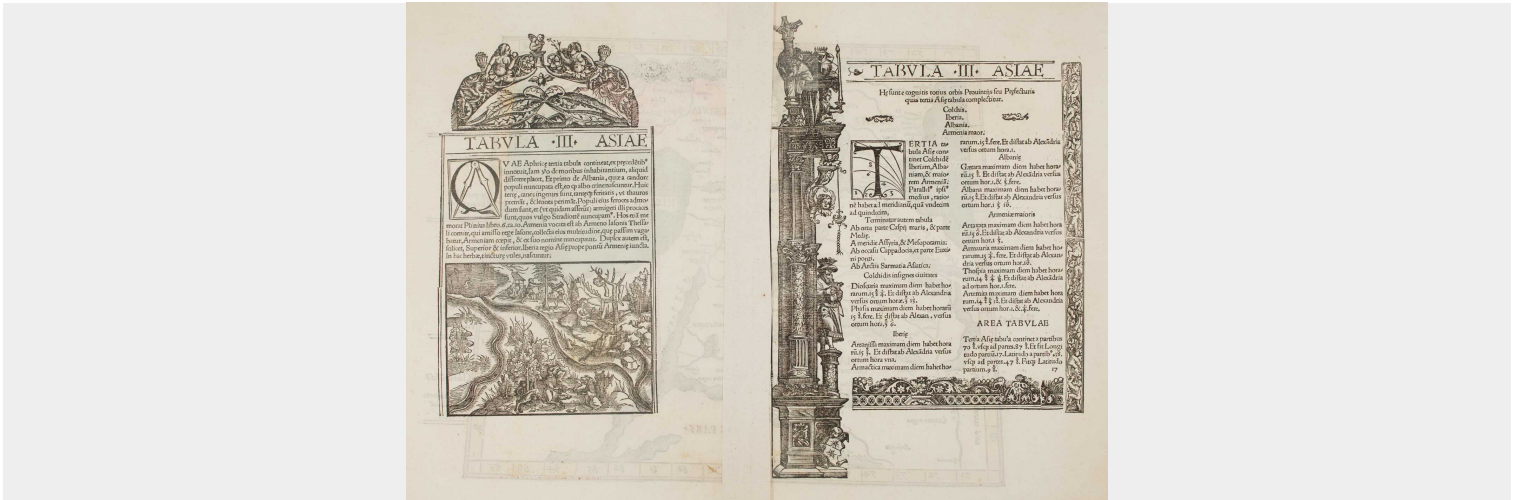 TABVLA ·III· ASIAE
QVAE Aphricę tertia tabula contineat, ex pręcedētib⁹
innotuit, Iam ṽo de moribus inhabitantium, aliquid
disserere placet. Et primo de Albania, quæ a candore
populi nuncupata est, eo ꝙ albo crine nascuntur. Huic
terrę, canes ingentes sunt, tantęꝗ feritatis, vt thauros
premāt, & leones perimāt. Populi eius feroces admo-
dum sunt, et (vt quidam asserūt) armigeri illi proceres
sunt, quos vulgo Stradiotē nuncupam⁹. Hos etiā me
morat Plinius libro.6.ca.10. Armenia vocata est ab Armeno Iasonis Thessa-
li comite, qui amisso rege Iasone, collecta eius multitudine, quę passim vaga-
batur, Armeniam cœpit, & ex suo nomine nuncupauit. Duplex autem est,
scilicet, Superior & inferior. Iberia regio Asię prope pontū Armenię iuncta.
In hac herbæ, tincturę vtiles, nascuntur.
TABVLA ·III· ASIAE
Hę sunt e cognitis totius orbis Prouintijs seu Pręfecturis
quas tertia Asię tabula complectitur.
Colchis.
Iberia.
Albania.
Armenia maior.
TERTIA ta-
bula Asię con-
tinet Colchidē
Iberiam, Alba-
niam, & maio-
rem Armeniā.
Parallel⁹ ipsi⁹
medius, ratio-
nē habet ad meridianū, quā vndecim
ad quindecim.
Terminatur autem tabula
Ab ortu parte Caspij maris, & parte
Medię.
A meridie Assyria, & Mesopotamia.
Ab occasu Cappadocia, et parte Euxi-
ni ponti.
Ab Arctis Sarmatia Asiatica.
Colchidis insignes ciuitates
Dioscuris maximum diem habet ho-
rarum. Et distat ab Alexandria
versus ortum horæ.
Phasis maximum diem habet horarū
15 fere. Et distat ab Alexan. versus
ortum hora.
Iberię
Artanissa maximum diem habet hora
rū.15. Et distat ab Alexādria versus
ortum hora vna.
Armactica maximam diem habet ho-
rarum.15 fere. Et distat ab Alexādria
versus ortum hora.1.
Albanię
Gætara maximum diem habet hora-
rū.15. Et distat ab Alexandria versus
ortum hor.1. & fere.
Albana maximum diem habet hora-
rū.15. Et distat ab Alexandria versus
ortum hor.1
Armeniæ maioris
Artaxata maximum diem habet ho-
rarū.15. Et distat ab Alexandria versus
ortum hor.1
Armauria maximum diem habet ho-
rarum.15. fere. Et distat ab Alexan-
dria versus ortum hor.
Thospia maximum diem habet hora-
rum.14. Et distat ab Alexādria
ad ortum hor.1. fere.
Artemita maximum diem habet hora
rum.14. Et distat ab Alexandria
versus ortum hor.1. & fere.
AREA TABVLAE
Tertia Asię tabula continet a partibus
70 vsꝗ ad partes.87. Et fit Longi
tudo partiū.17. Latitudo a partib⁹.38.
vsꝗ ad partes.47. Fitꝗ Latitudo
partium.9
17